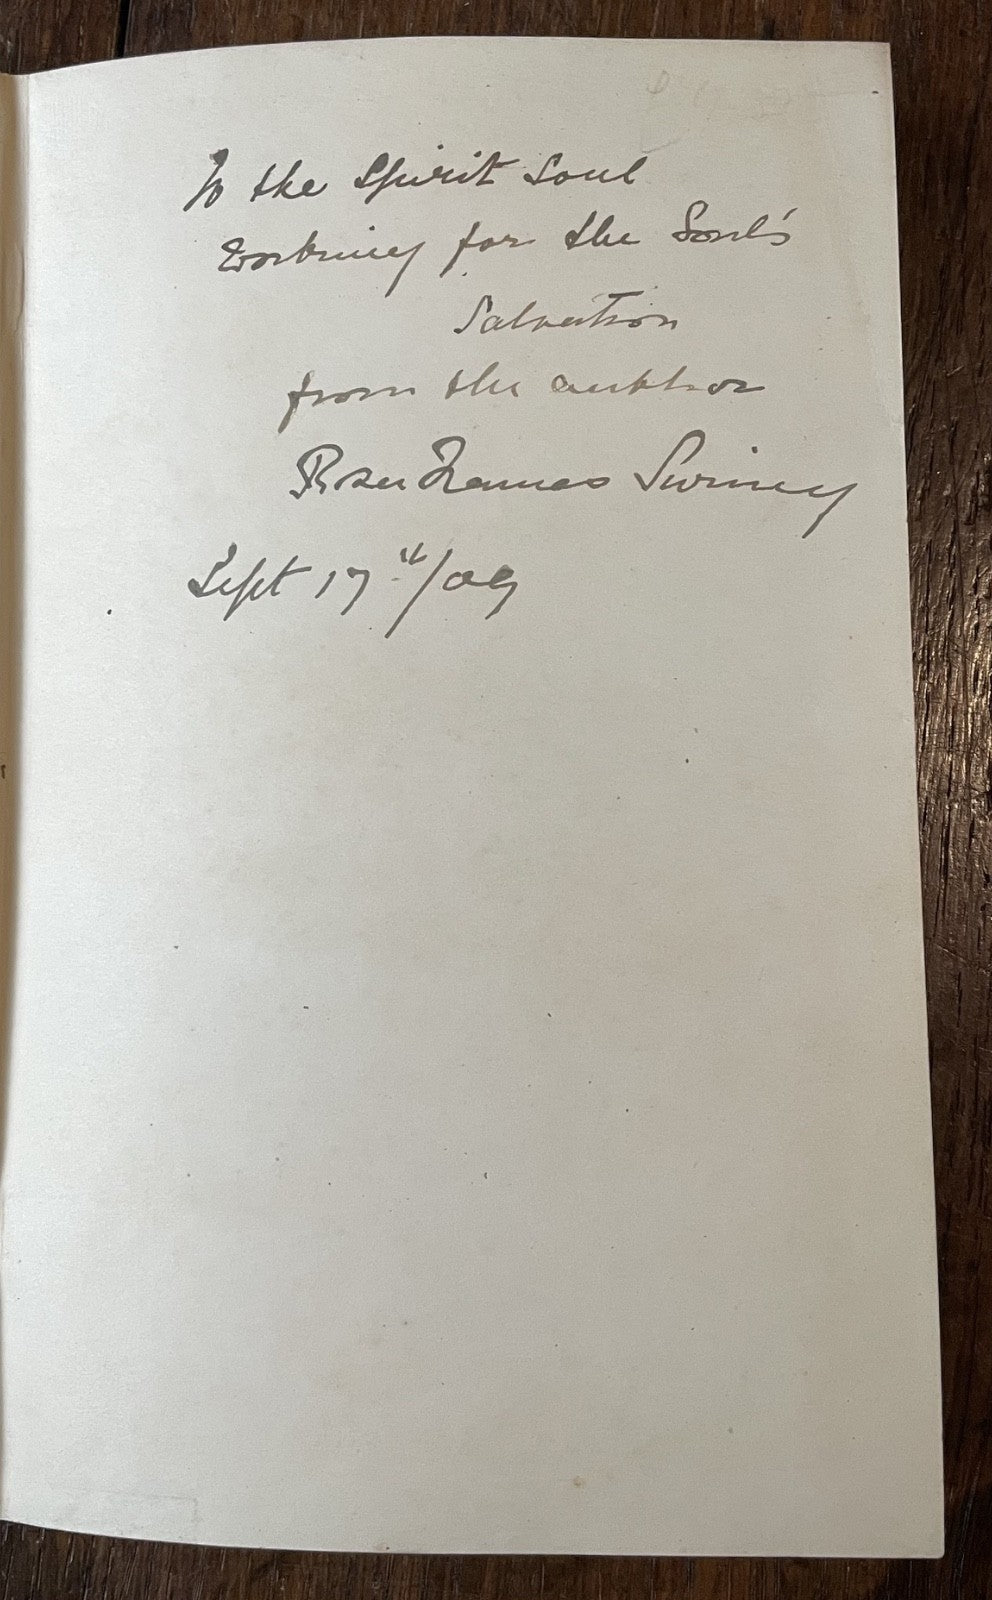 To the Spirit Soul
working for the Soul's
Salvation
from the author
Rosa Frances Swiney
Sept 17th/09